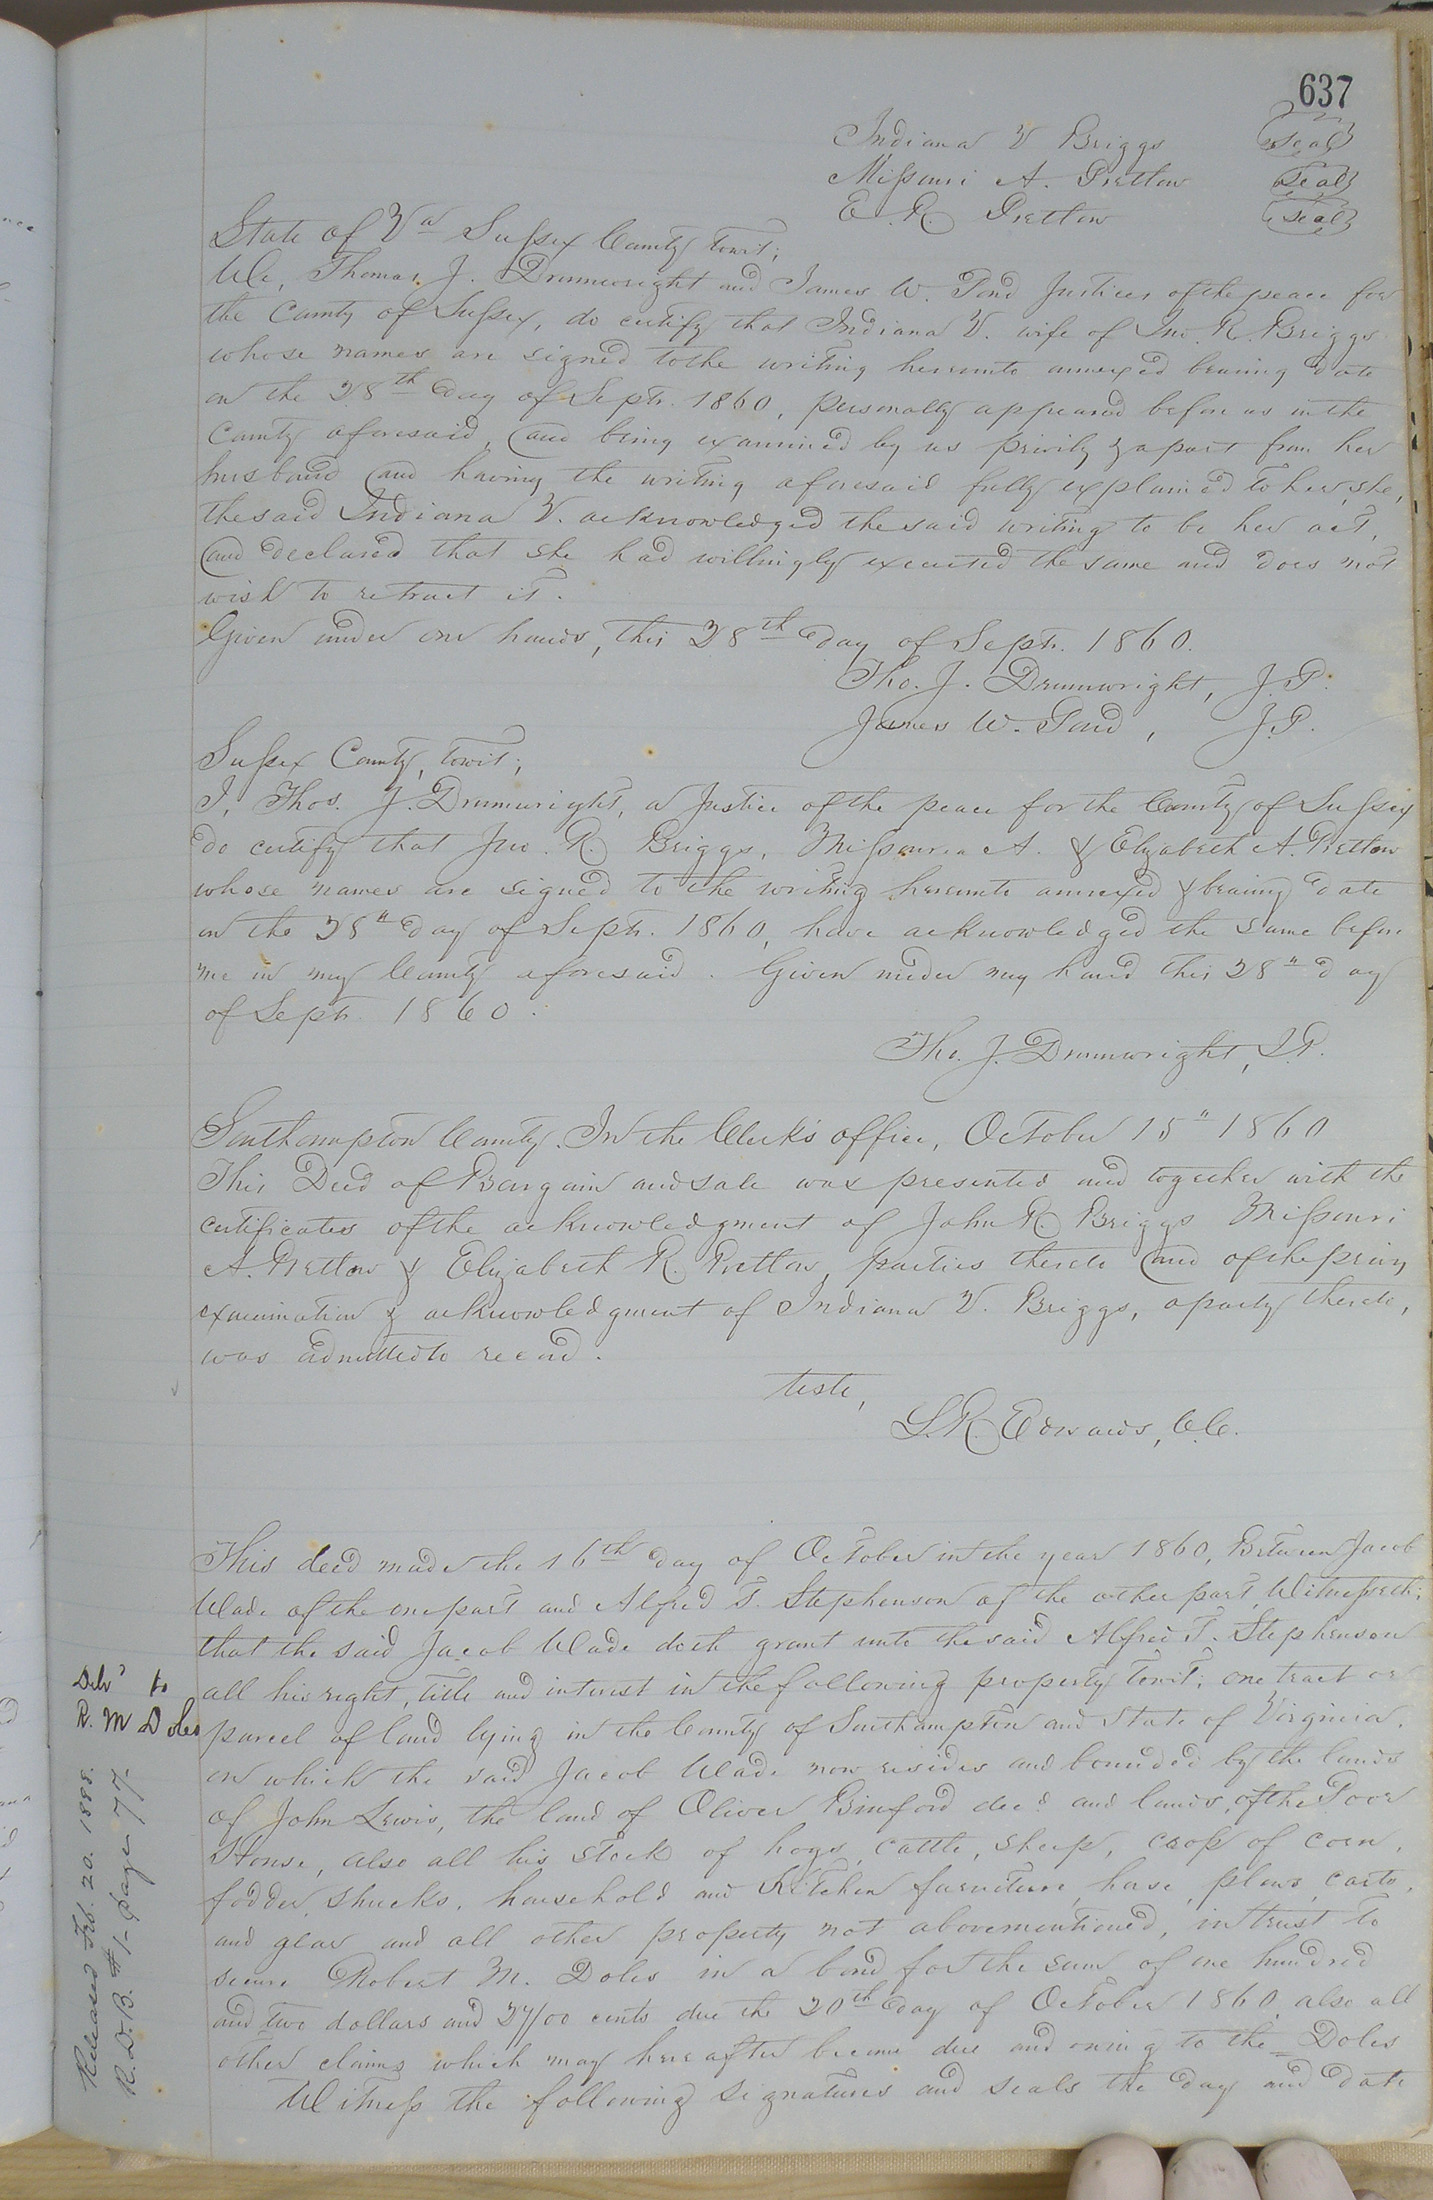 637
Indiana V Briggs (seal)
Missouri A. Pretlow (seal)
E. R. Pretlow (seal)
State of Va Sussex County towit;
We, Thomas J. Drumwright and James W. Pond Justices of the peace for
the County of Sussex, do certify that Indiana V. wife of Jno. R. Briggs
whose names are signed to the writing hereunto annexed bearing date
on the 28th day of Septr. 1860, personally appeared before us in the
County aforesaid, and being examined by us privily & apart from her
husband and having the writing aforesaid fully explained to her, she,
the said Indiana V. acknowledged the said writing to be her act,
and declared that she had willingly executed the same and does not
wish to retract it.
Given under our hands, this 28th day of Septr. 1860.
Tho. J. Drumwright, J.P.
James W. Pond, J.P.
Sussex County, towit;
I, Thos. J. Drumwright, a Justice of the peace for the County of Sussex
do certify that Jno. R. Briggs, Missouria A. & Elizabeth A. Pretlow
whose names are signed to the writing hereunto annexed & bearing date
on the 28" day of Septr. 1860, have acknowledged the same before
me in my County aforesaid. Given under my hand this 28" day
of Septr. 1860.
Tho. J. Drumwright, J.P.
Southampton County. In the Clerk's office, October 15" 1860
This Deed of Bargain and sale was presented and together with the
certificates of the acknowledgment of John R. Briggs Missouri
A. Pretlow & Elizabeth R. Pretlow, parties thereto and of the privy
examination & acknowledgment of Indiana V. Briggs, a party thereto,
was admitted to record.
teste,
L. R. Edwards, C.C.
This deed made the 16th day of October in the year 1860, Between Jacob
Wade of the one part and Alfred T. Stephenson of the other part, Witnesseth;
that the said Jacob Wade doth grant unto the said Alfred T. Stephenson
all his right, title and interest in the following property towit; one tract or
parcel of land lying in the County of Southampton and State of Virginia,
on which the said Jacob Wade now resides and bounded by the lands
of John Lewis, the land of Oliver Binford decd and lands, of the Poor
House, also all his stock of hogs, cattle, sheep, crop of corn,
fodder, shucks, household and Kitchen furniture, horse, plows, carts,
and gear and all other property not abovementioned, in trust to
secure Robert M. Doles in a bond for the sum of one hundred
and two dollars and 27/00 cents due the 20th day of October 1860, also all
other claims which may hereafter become due and owing to the Doles
Witness the following signatures and seals the day and date
Deld to
R. M Doles
Released Feb. 20. 1888.
R. D. B. #1 - page 77.